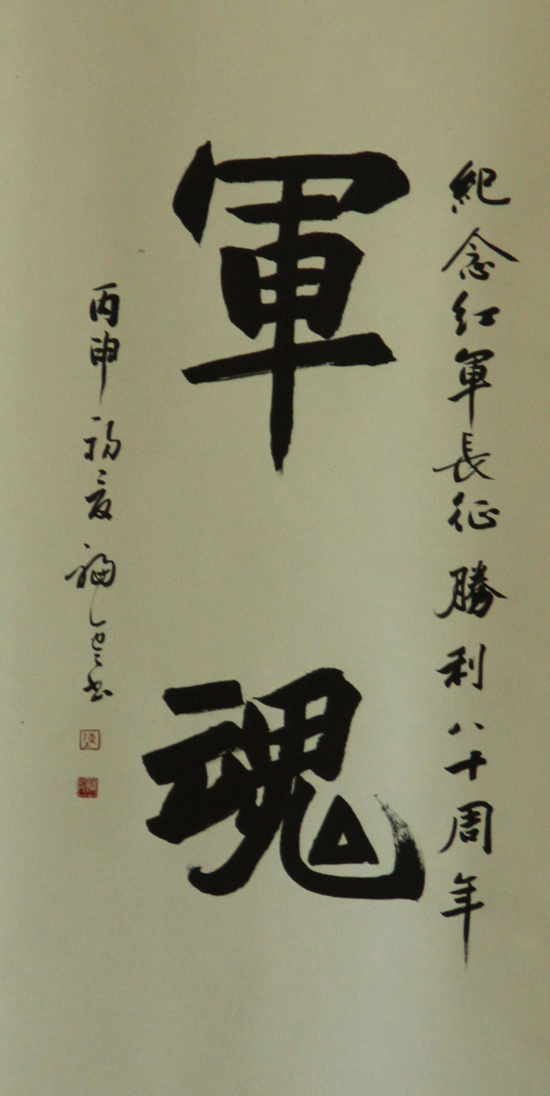 紀念红軍長征勝利八十周年
軍魂
丙申初夏福書